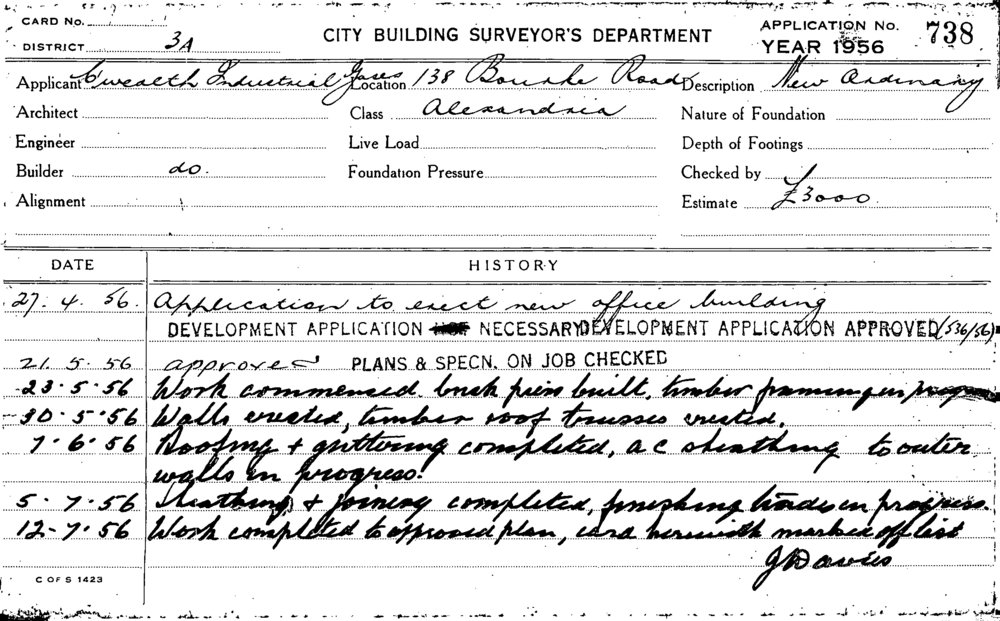 CARD No.
DISTRICT 3A
CITY BUILDING SURVEYOR'S DEPARTMENT
APPLICATION No. 738
YEAR 1956
Applicant C'wealth Industrial Gases Location 138 Bourke Road Description New Ordinary
Architect Class Alexandria Nature of Foundation
Engineer Live Load Depth of Footings
Builder do. Foundation Pressure Checked by
Alignment Estimate £3000
DATE HISTORY
27. 4. 56. Application to erect new office building
DEVELOPMENT APPLICATION NECESSARY DEVELOPMENT APPLICATION APPROVED (536/56)
21. 5. 56 approved PLANS & SPECN. ON JOB CHECKED
23. 5. 56 Work commenced. brick piers built, timber framing in progress
30. 5. 56 Walls erected, timber roof trusses erected.
7. 6. 56 Roofing & guttering completed, a c sheathing to outer
walls in progress.
5. 7. 56 Sheathing & joinery completed, finishing trades in progress.
12-7. 56 Work completed to approved plan, card herewith marked off list
Davies
C OF S 1423